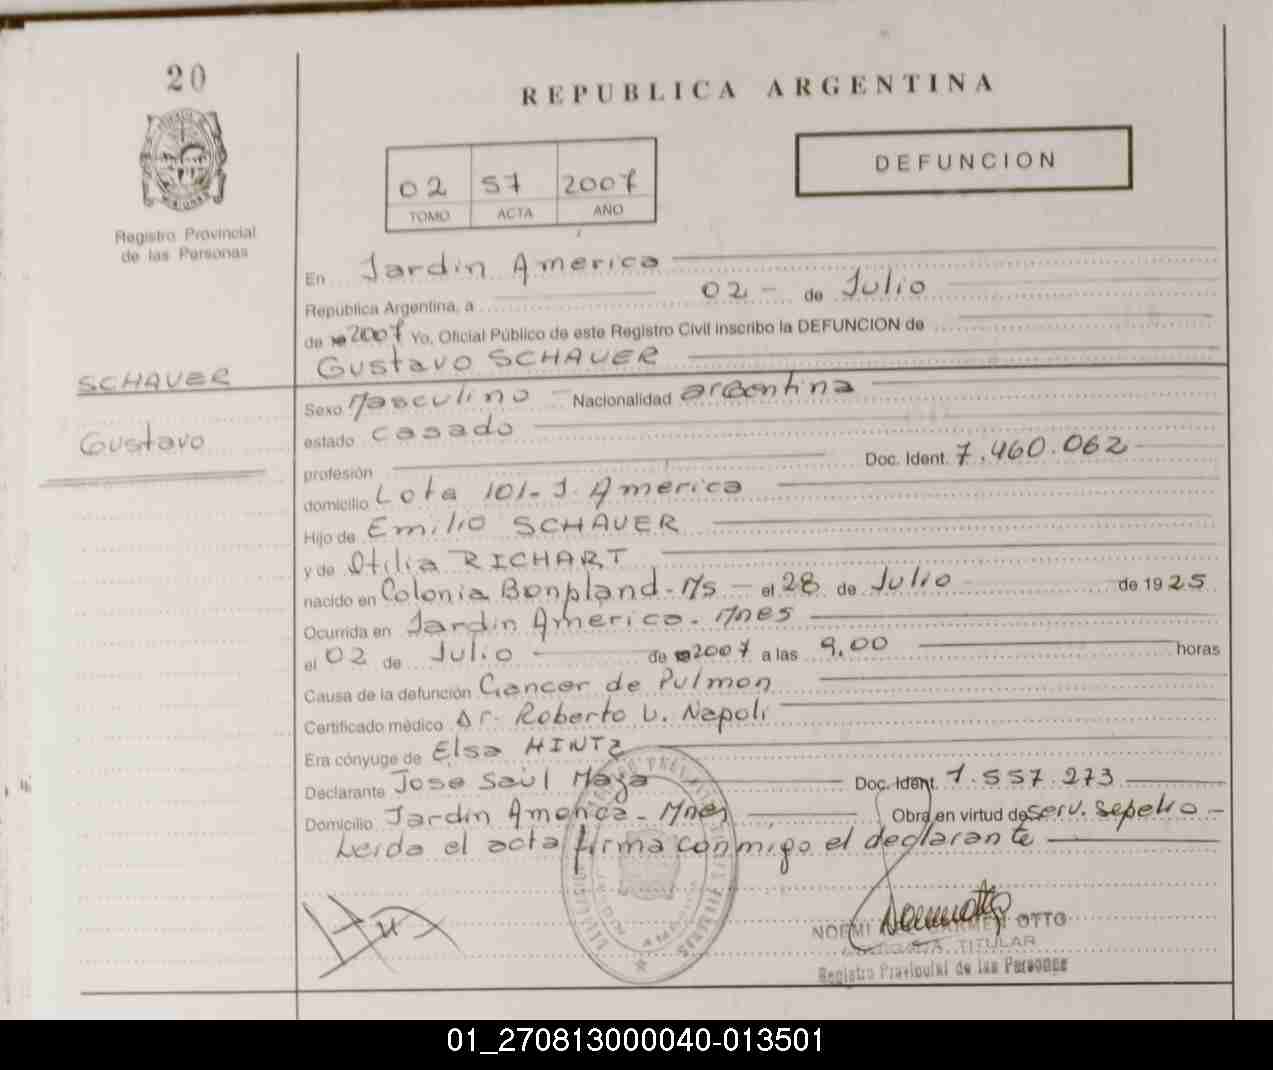 20
REPUBLICA ARGENTINA
DEFUNCION
02 57 2007
TOMO ACTA AÑO
Registro Provincial
de las Personas
En Jardin America
República Argentina, a 02 - de Julio
de 2007 Yo, Oficial Público de este Registro Civil inscribo la DEFUNCION de
Gustavo SCHAUER
SCHAUER
Gustavo
Sexo Masculino Nacionalidad argentina
estado casado
profesión Doc. Ident. 7.460.062
domicilio Lote 101- J. America
Hijo de Emilio SCHAUER
y de Otilia RICHART
nacido en Colonia Bonpland - Ms - el 28 de Julio de 1925
Ocurrida en Jardin America - Mnes
el 02 de Julio de 2007 a las 9,00 horas
Causa de la defunción Cancer de Pulmon
Certificado médico Dr. Roberto U. Napoli
Era cónyuge de Elsa HINTZ
Declarante Jose Saúl Maya Doc. Ident. 7.557.273
Domicilio Jardin America - Mnes Obra en virtud de Serv. Sepelio -
Leida el acta firma conmigo el declarante
NOEMI OTTO
TITULAR
Registro Provincial de las Personas
01_270813000040-013501